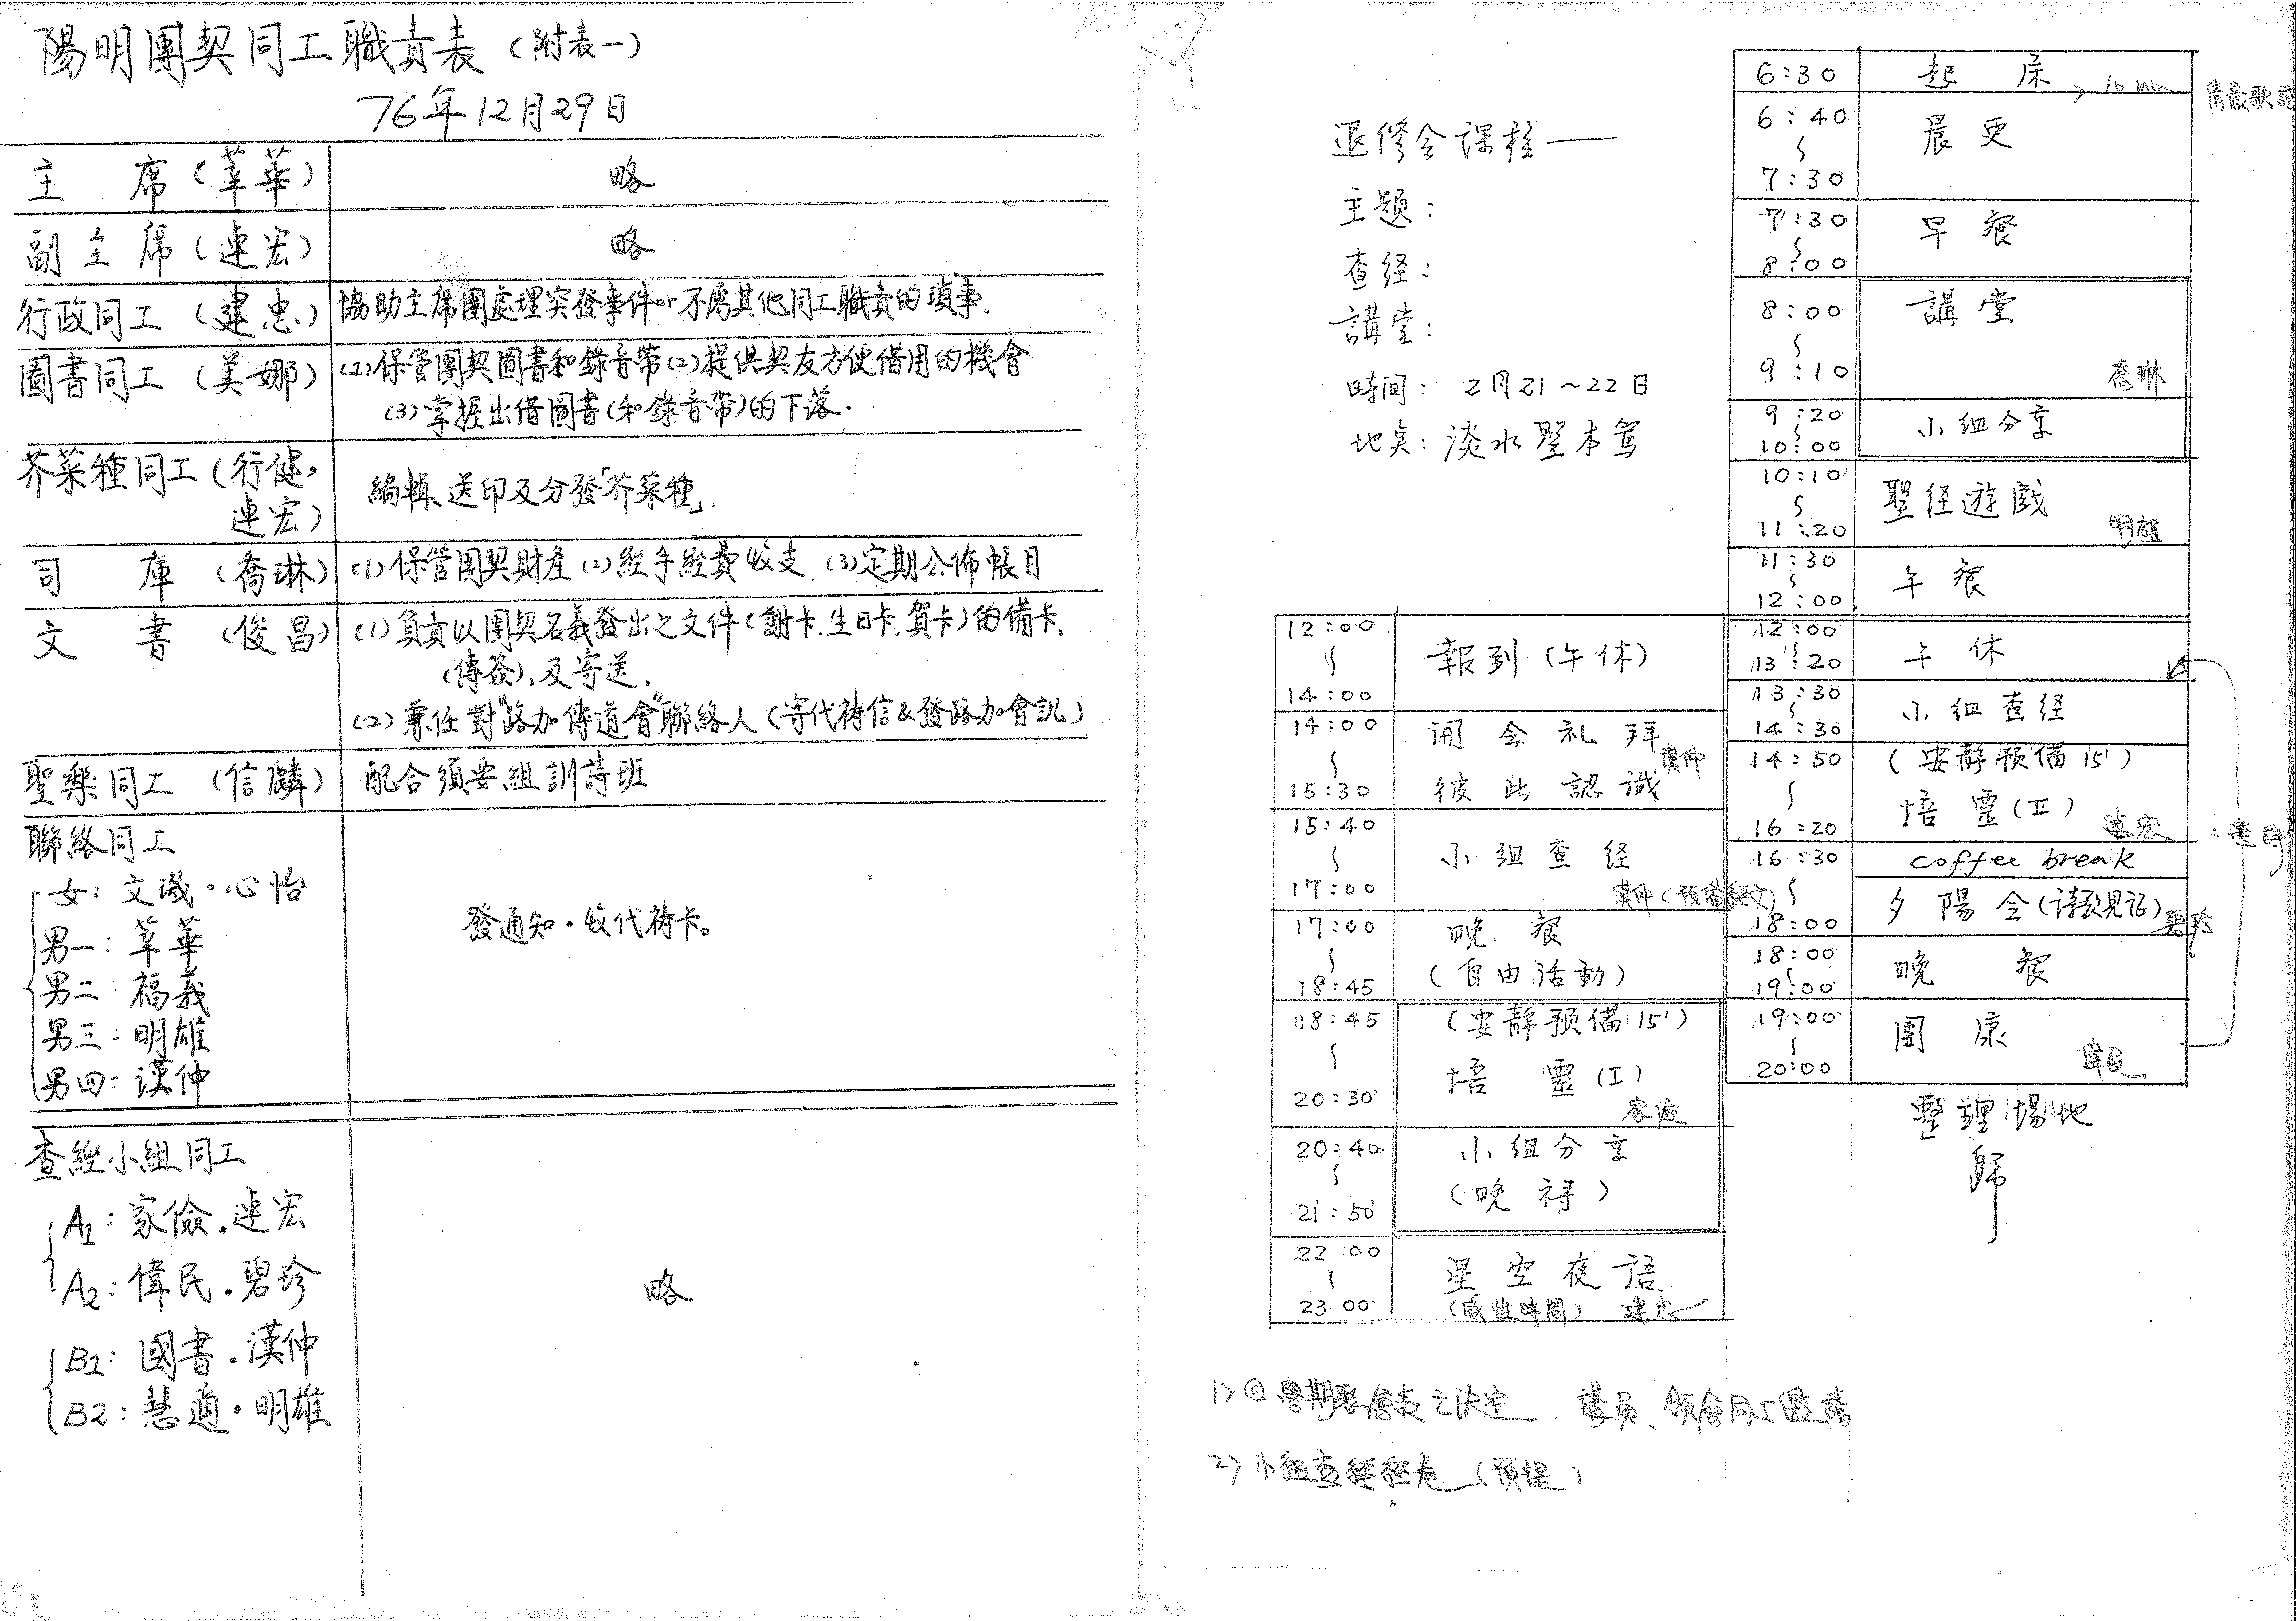 P2
陽明團契同工職責表(附表一)
76年12月29日
主 席(莘華) 略
副主席(連宏) 略
行政同工(建忠) 協助主席團處理突發事件or不屬其他同工職責的瑣事.
圖書同工(美娜) (1)保管團契圖書和錄音帶(2)提供契友方便借用的機會
(3)掌握出借圖書(和錄音帶)的下落.
芥菜種同工(行健,
連宏) 編輯、送印及分發「芥菜種」.
司 庫(喬琳) (1)保管團契財產(2)經手經費收支 (3)定期公佈帳目
文 書(俊昌) (1)負責以團契名義發出之文件(謝卡.生日卡.賀卡)的備卡、
(傳簽),及寄送.
(2)兼任對"路加傳道會"聯絡人(寄代禱信&發路加會訊)
聖樂同工(信麟) 配合須要組訓詩班
聯絡同工
女:文璣·心怡
男一:莘華
男二:福義
男三:明雄
男四:漢仲
發通知·收代禱卡。
查經小組同工
A1:家儉.連宏
A2:偉民.碧珍
B1:國書.漢仲
B2:慧適·明雄
略
退修会課程——
主題:
查経:
講堂:
時間: 2月21~22日
地点:淡水聖本篤
12:00~14:00 報到(午休)
14:00~15:30 開会礼拜
彼此認識 漢仲
15:40~17:00 小組查経
漢仲(預備経文)
17:00~18:45 晚餐
(自由活動)
18:45~20:30 (安靜預備15')
培靈(I)
家儉
20:40~21:50 小組分享
(晚禱)
22:00~23:00 星空夜語
(感性時間) 建忠
6:30 起床
10 min
6:40~7:30 晨更
7:30~8:00 早餐
8:00~9:10 講堂
喬琳
9:20~10:00 小組分享
10:10~11:20 聖経遊戲
明雄
11:30~12:00 午餐
12:00~13:20 午休
13:30~14:30 小組查経
14:50~16:20 (安靜預備15')
培靈(II)
連宏
16:30~18:00 coffee break
夕陽会(詩歌見証)
碧珍
18:00~19:00 晚餐
19:00~20:00 團康
偉民
整理場地
歸
1) 學期聚會表之決定、講員、領會同工邀請
2) 小組查經經卷(預提)